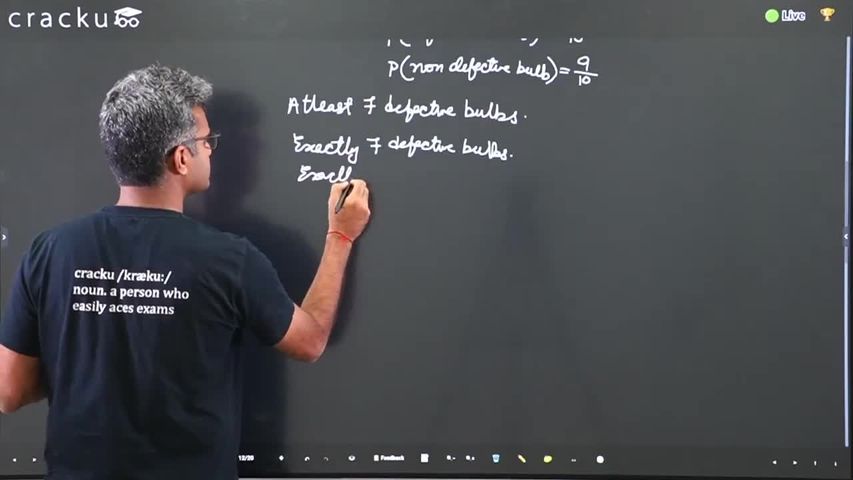 cracku
Live
P(non defective bulb) = 9/10
Atleast 7 defective bulbs.
Exactly 7 defective bulbs.
Exactl
cracku /kræku:/
noun. a person who
easily aces exams
12/20
Feedback